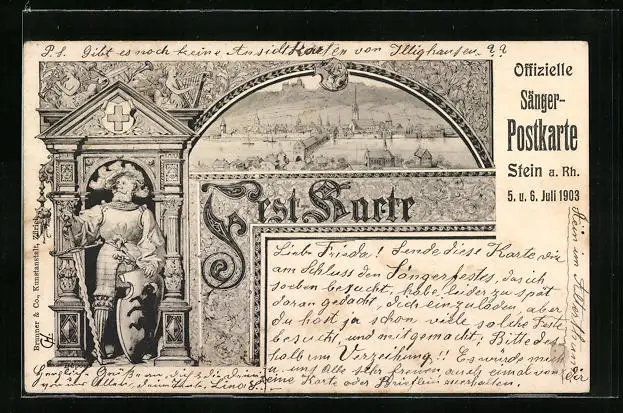 P.S. Gibt es noch keine Ansichtkarten von Illighausen ??
Offizielle
Sänger-
Postkarte
Stein a. Rh.
5. u. 6. Juli 1903
Fest-Karte
Liebe Frieda! Sende diese Karte dir
am Schluss des Sängerfestes, das ich
soeben besucht, habe leider zu spät
daran gedacht, dich einzuladen, aber
du hast ja schon viele solche Feste
besucht, und mitgemacht. Bitte des
halb um Verzeihung!! Es würde mich
u. uns Alle sehr freuen auch einmal von dir
eine Karte oder Brieflein zu erhalten.
Herzliche Grüße an dich & die deinen
von uns Allen, dein
Brunner & Co., Kunstanstalt, Zürich